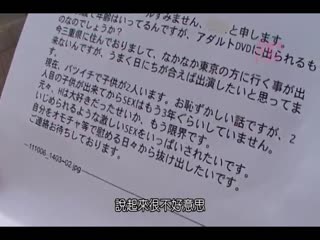 すみません、　　と申します。
年齢はいってるんですが、アダルトDVDに出られるも
のなのでしょうか?
今三重県に住んでおりまして、なかなか東京の方に行く事が出
来ないんですが、うまく日にちが合えば出演したいと思ってま
す。
現在、バツイチで子供が2人います。お恥ずかしい話ですが、2
人目の子供が出来てからSEXはもう3年くらいしていません。
元々、Hは大好きだったせいか、もう限界です。
いじめられるような激しいSEXをいっぱいされたいです。
自分をオモチャ等で慰める日々から抜け出したいです。
ご連絡お待ちしております。
111006_1403~02.jpg
說起來很不好意思